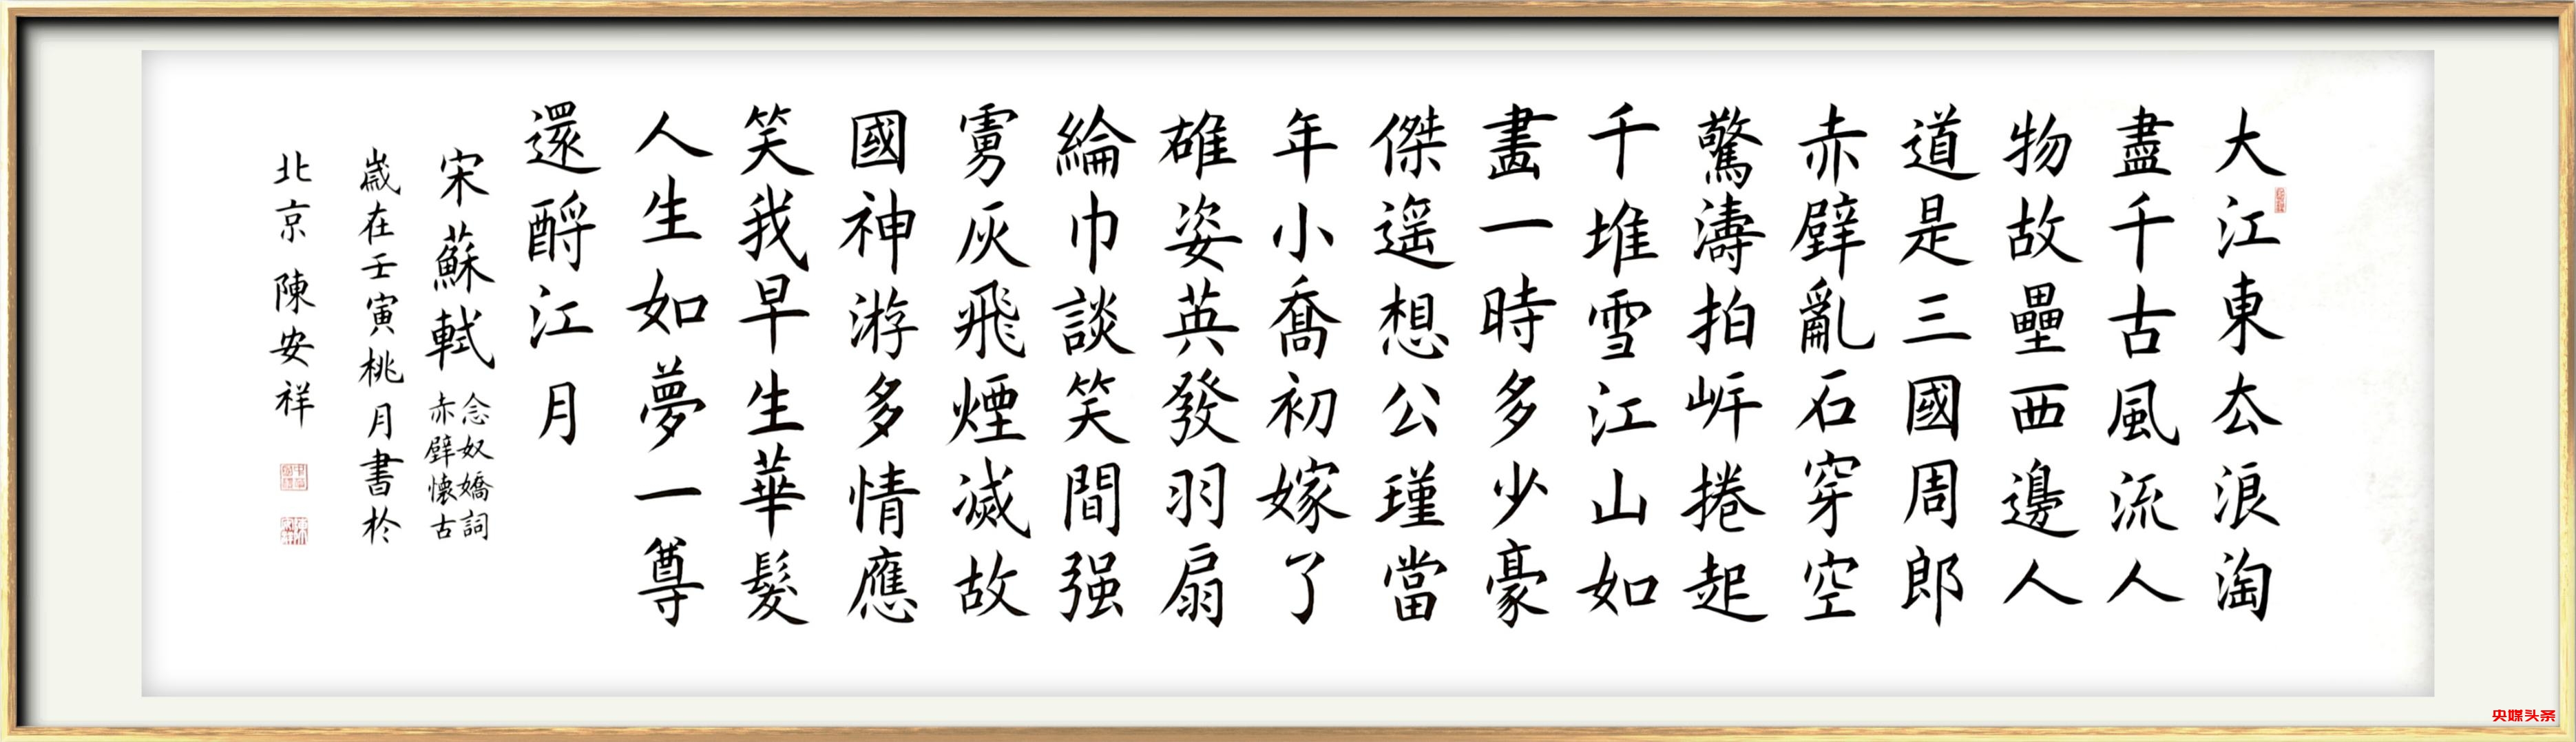 大江東厺浪淘
盡千古風流人
物故壘西邊人
道是三國周郎
赤壁亂石穿空
驚濤拍岸捲起
千堆雪江山如
畫一時多少豪
傑遥想公瑾當
年小喬初嫁了
雄姿英發羽扇
綸巾談笑間强
虜灰飛煙滅故
國神游多情應
笑我早生華髮
人生如夢一尊
還酹江月
宋蘇軾
念奴嬌詞
赤壁懷古
歲在壬寅桃月書於
北京陳安祥
央媒头条